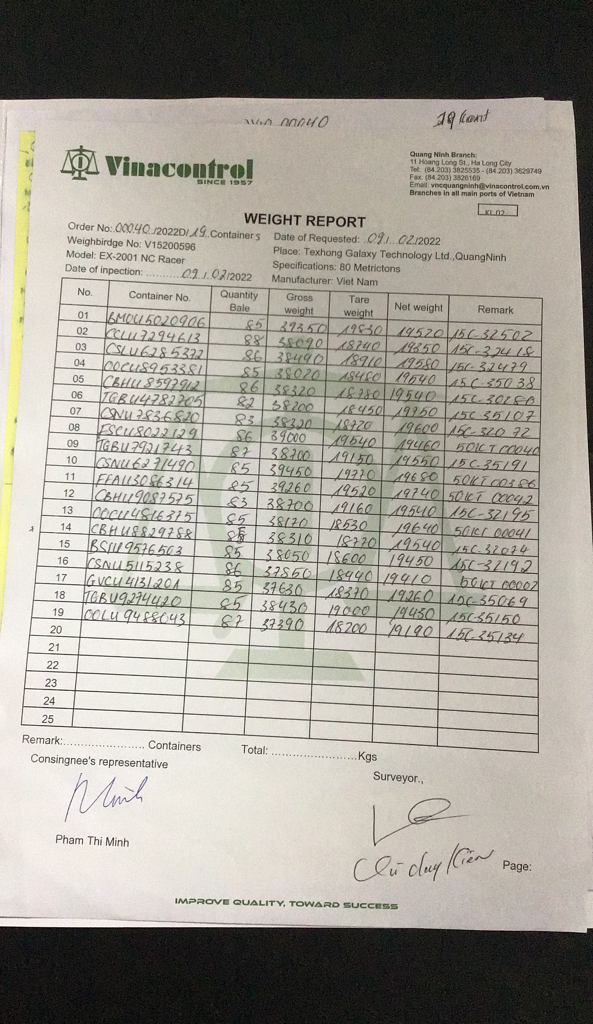 00040
19 Cont
Vinacontrol
SINCE 1957
Quang Ninh Branch:
11 Hoang Long St., Ha Long City
Tel: (84.203) 3825535 - (84.203) 3629749
Fax: (84.203) 3826169
Email: vncquangninh@vinacontrol.com.vn
Branches in all main ports of Vietnam
KL 02
WEIGHT REPORT
Order No: 00040./2022D/19.Containers Date of Requested: 09/.02/2022
Weighbirdge No: V15200596 Place: Texhong Galaxy Technology Ltd.,QuangNinh
Model: EX-2001 NC Racer Specifications: 80 Metrictons
Date of inpection: ..........09/.02/2022 Manufacturer: Viet Nam
No. Container No. Quantity Bale Gross weight Tare weight Net weight Remark
01 BMOU5020906 85 39350 19830 19520 15C-32502
02 CCLU7294613 88 38090 18740 19350 15C-32418
03 CSLU6285372 86 38490 18910 19580 15C-32479
04 OOCU8953381 85 38020 18480 19540 15C-35038
05 CBHU8597912 86 38320 18780 19540 15C-30280
06 TGBU4782705 82 38200 18450 19750 15C-35107
07 CSNU7836820 83 38320 18720 19600 15C-31072
08 FSCU8022129 86 39000 19540 19460 50KT 00040
09 TGBU7921743 87 38700 19150 19550 15C-35191
10 CSNU6271490 85 39450 19770 19680 50KT 00386
11 FFAU3086314 85 39260 19520 19740 50KT 00042
12 CBHU9087575 83 38700 19160 19540 15C-32195
13 OOCU4816375 85 38170 18530 19640 50KT 00041
14 CBHU8829788 38310 18770 19540 15C-32074
15 BSIU9576503 85 38050 18600 19450 15C-32192
16 CSNU5115238 86 37850 18440 19410 50KT 00002
17 GVCU4131201 85 37630 18370 19260 15C-35069
18 TGBU9274420 85 38430 19000 19430 15C-35150
19 OOLU9488043 87 37390 18200 19190 15C-35134
20
21
22
23
24
25
Remark:........................ Containers Total: .........................Kgs
Consingnee's representative
Surveyor.,
Minh
Pham Thi Minh
Page:
IMPROVE QUALITY, TOWARD SUCCESS